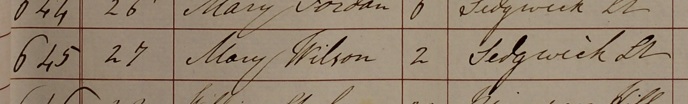 644 26 Mary Jordan 6 Sedgwick St
645 27 Mary Wilson 2 Sedgwick St